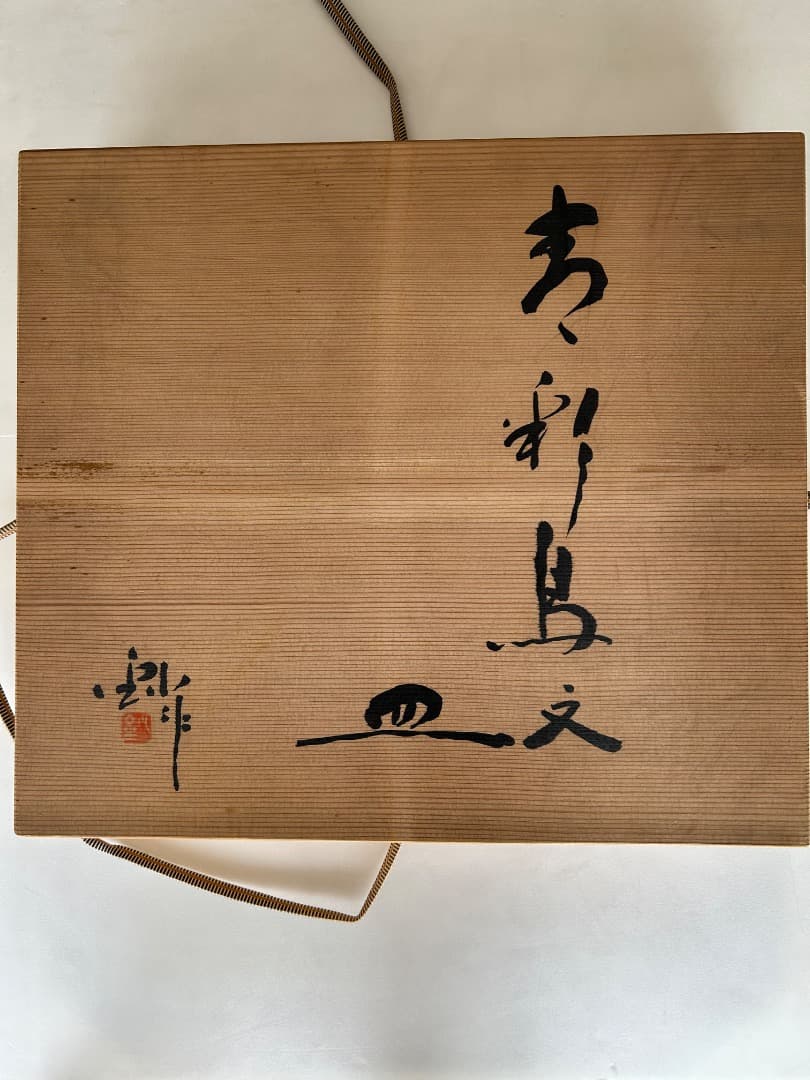 青彩鳥文
皿
作